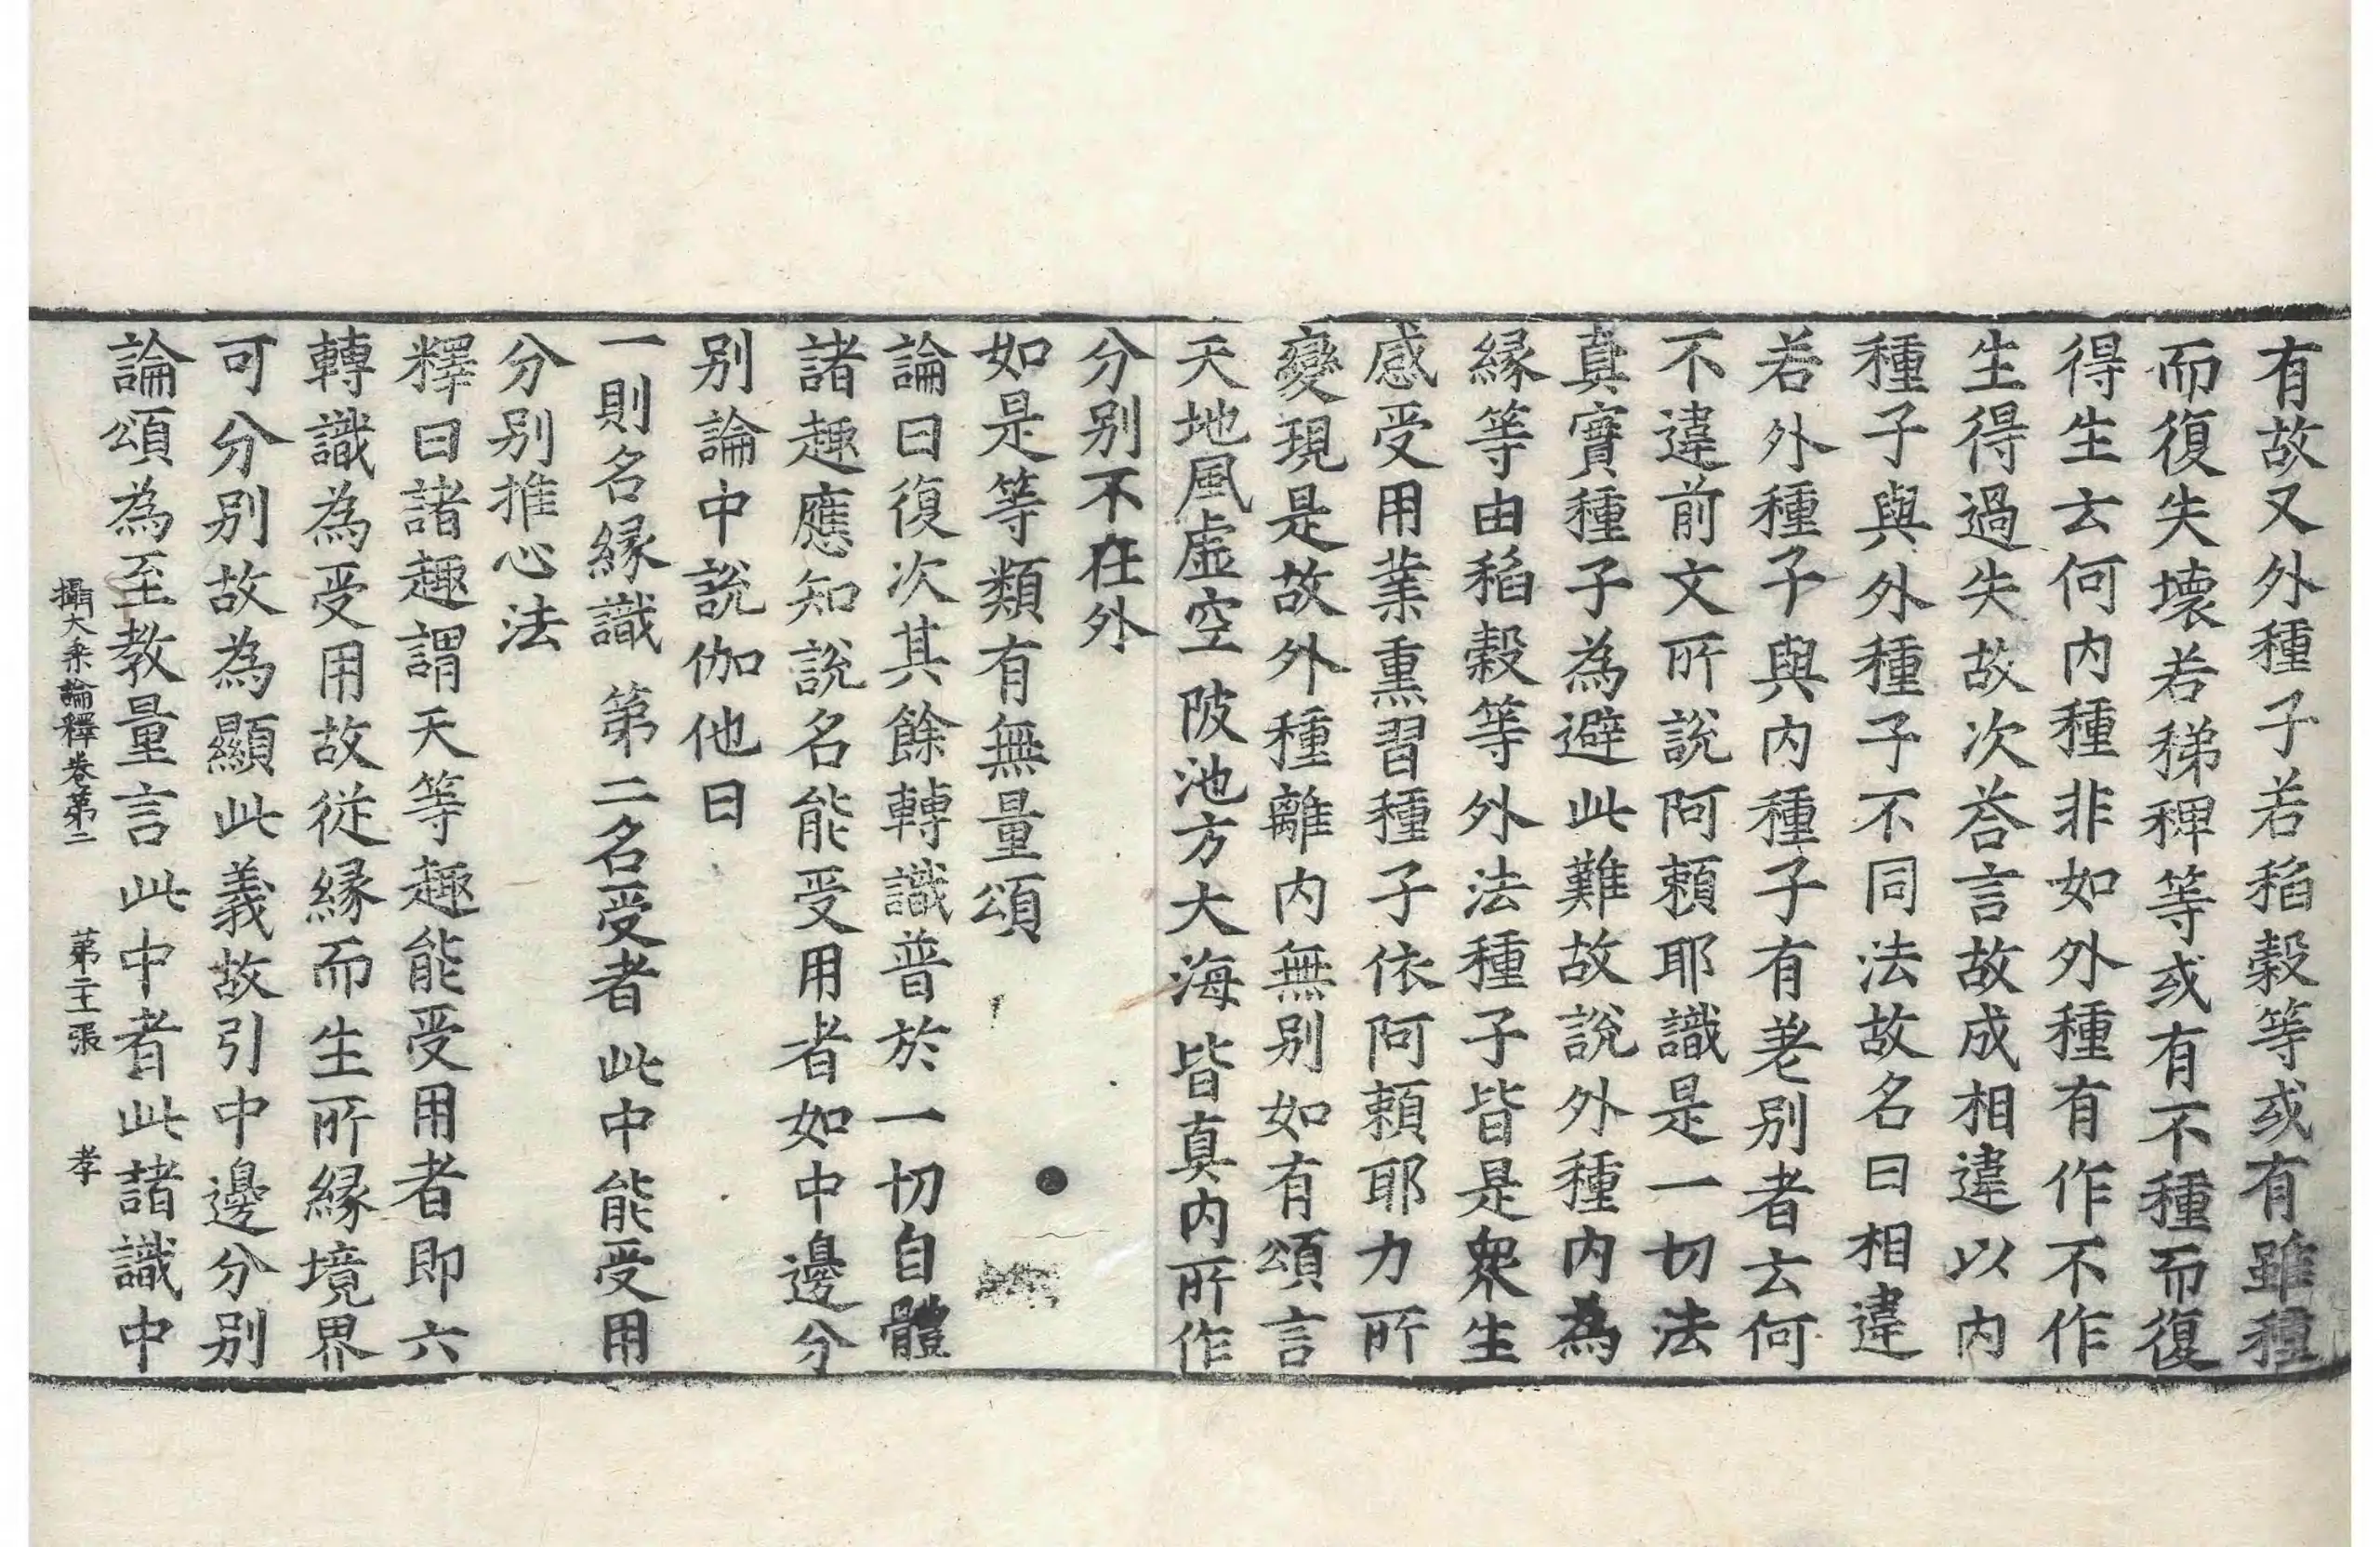 有故又外種子若稻穀等或有雖種
而復失壞若稊稗等或有不種而復
得生去何内種非如外種有作不作
生得過失故次荅言故成相違以内
種子與外種子不同法故名曰相違
若外種子與内種子有差別者去何
不違前文所說阿頼耶識是一切法
真實種子為避此難故說外種内為
縁等由稻穀等外法種子皆是衆生
感受用業熏習種子依阿頼耶力所
變現是故外種離内無別如有頌言
天地風虛空 陂池方大海 皆真内所作
分別不在外
如是等類有無量頌
論曰復次其餘轉識普於一切自體
諸趣應知說名能受用者如中邊分
別論中說伽他曰
一則名縁識 第二名受者 此中能受用
分別推心法
釋曰諸趣謂天等趣能受用者即六
轉識為受用故從縁而生所縁境界
可分別故為顯此義故引中邊分別
論頌為至教量言此中者此諸識中
攝大乘論釋卷第二 第二十張 孝